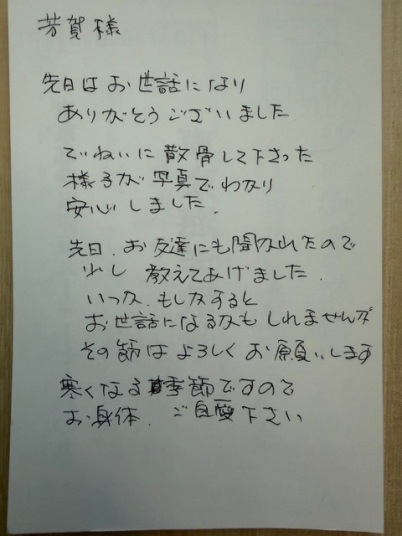 芳賀様
先日はお世話になり
ありがとうございました
でねいに散骨して下さった
様子が写真でわかり
安心しました.
先日.お友達にも聞かれたので
少し 教えてあげました.
いつか.もしかすると
お世話になるかもしれませんが
その節はよろしくお願いします
寒くなる季節ですので
お身体.ご自愛下さい